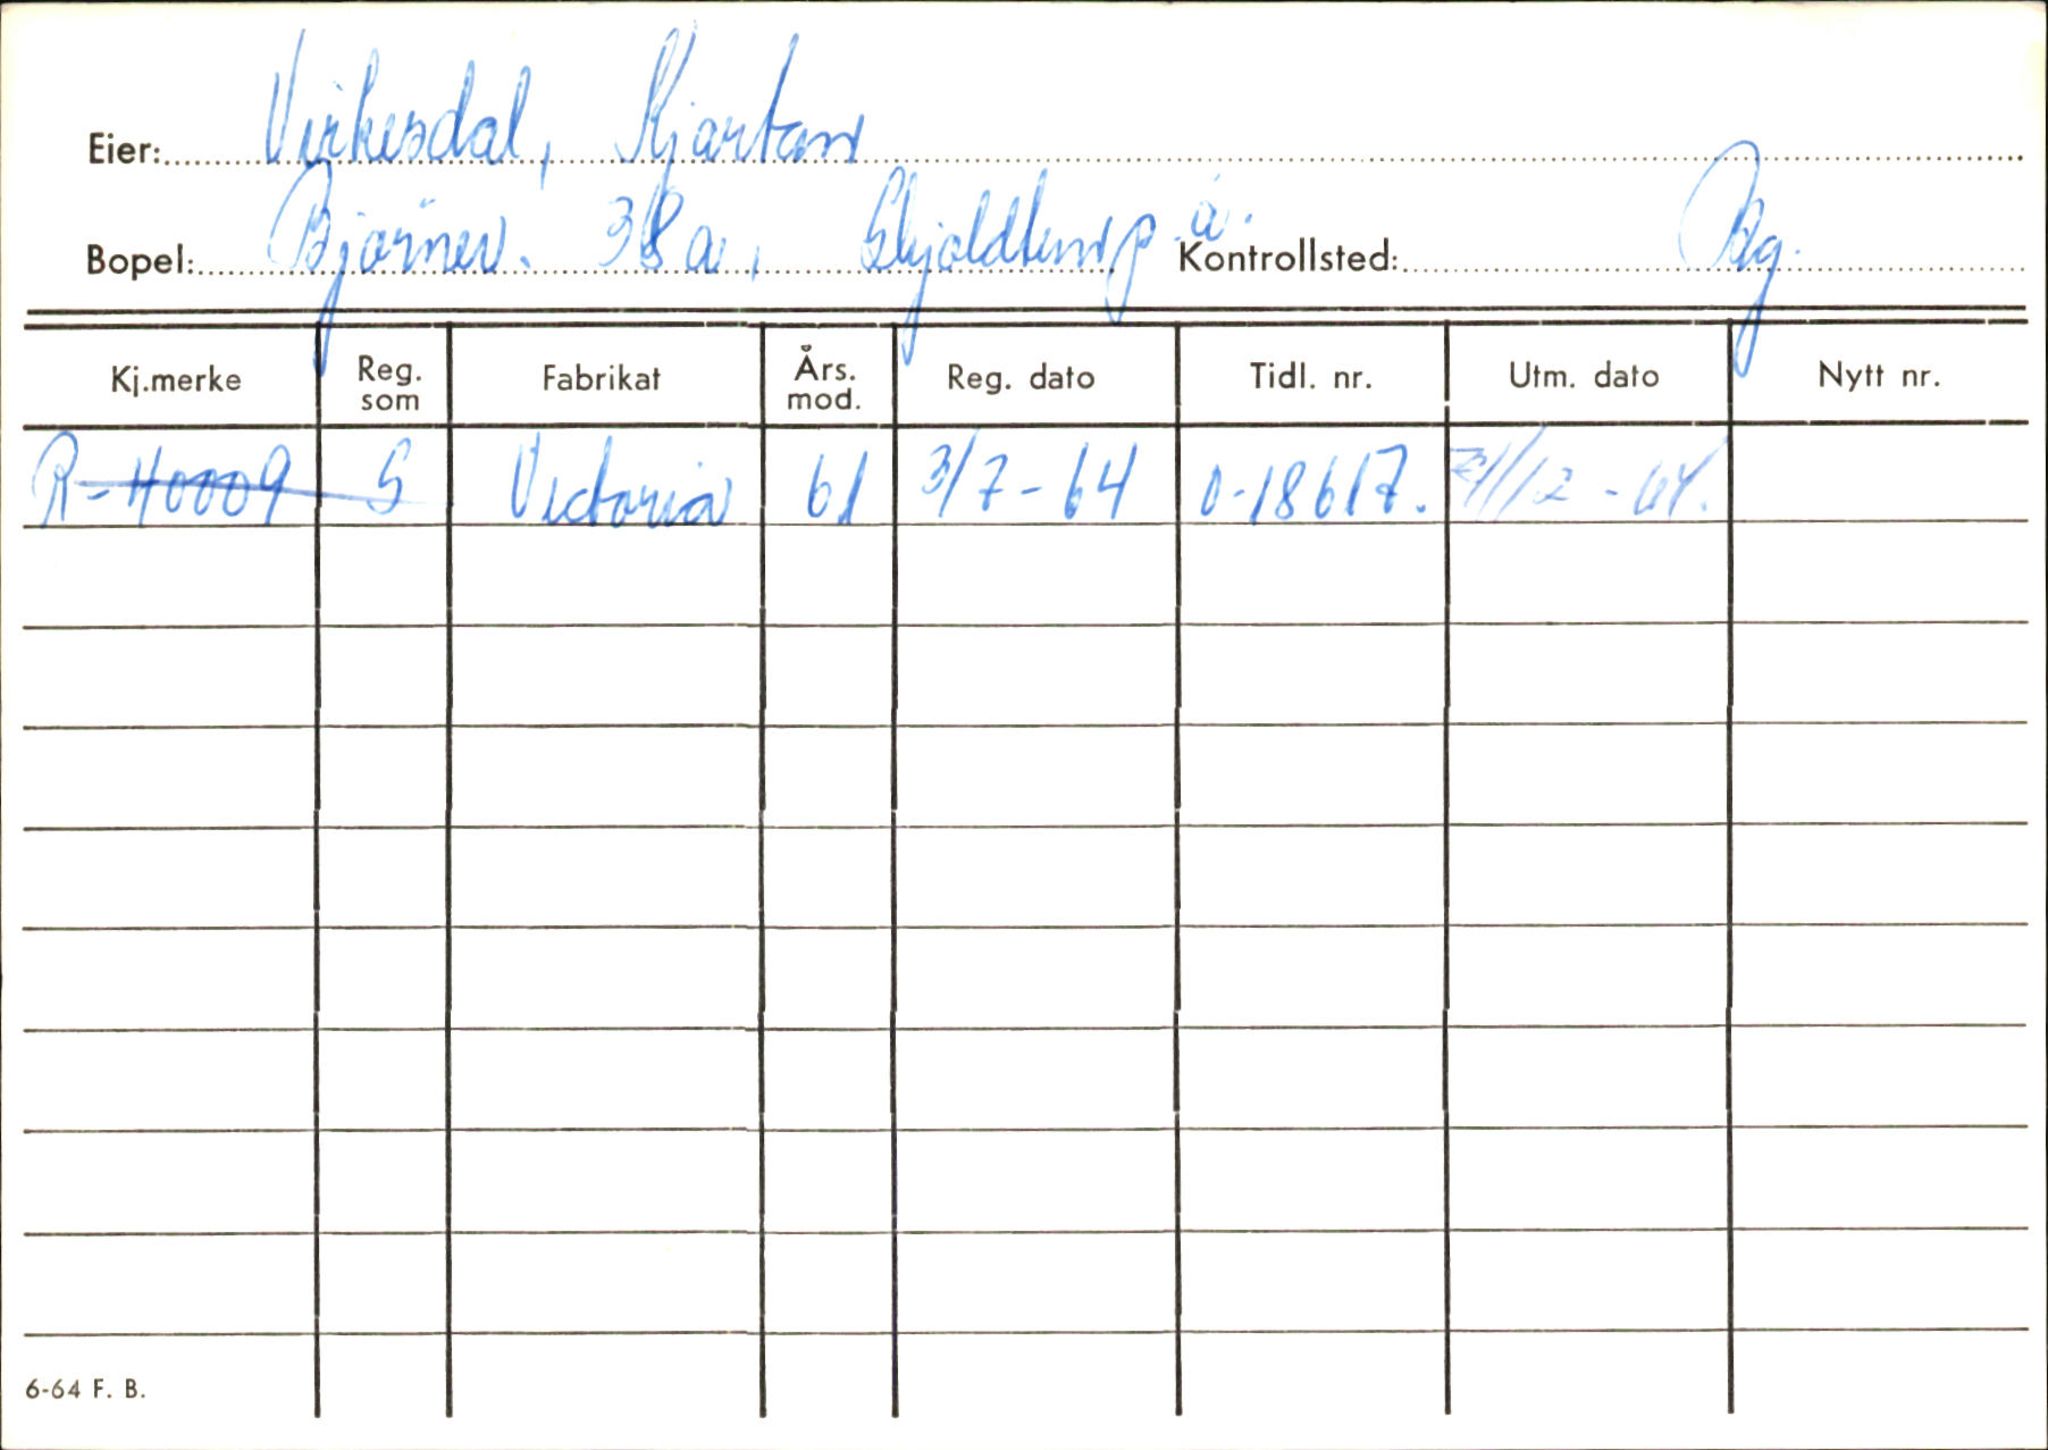 Eier: Virkesdal, Kjartan
Bopel: Bjørnev. 38 a, Skjoldtun p.å. Kontrollsted: Bg.
Kj.merke Reg. som Fabrikat Års. mod. Reg. dato Tidl. nr. Utm. dato Nytt nr.
R-40009 S Victoria 61 3/7-64 O-18617. 21/12-64.
6-64 F. B.